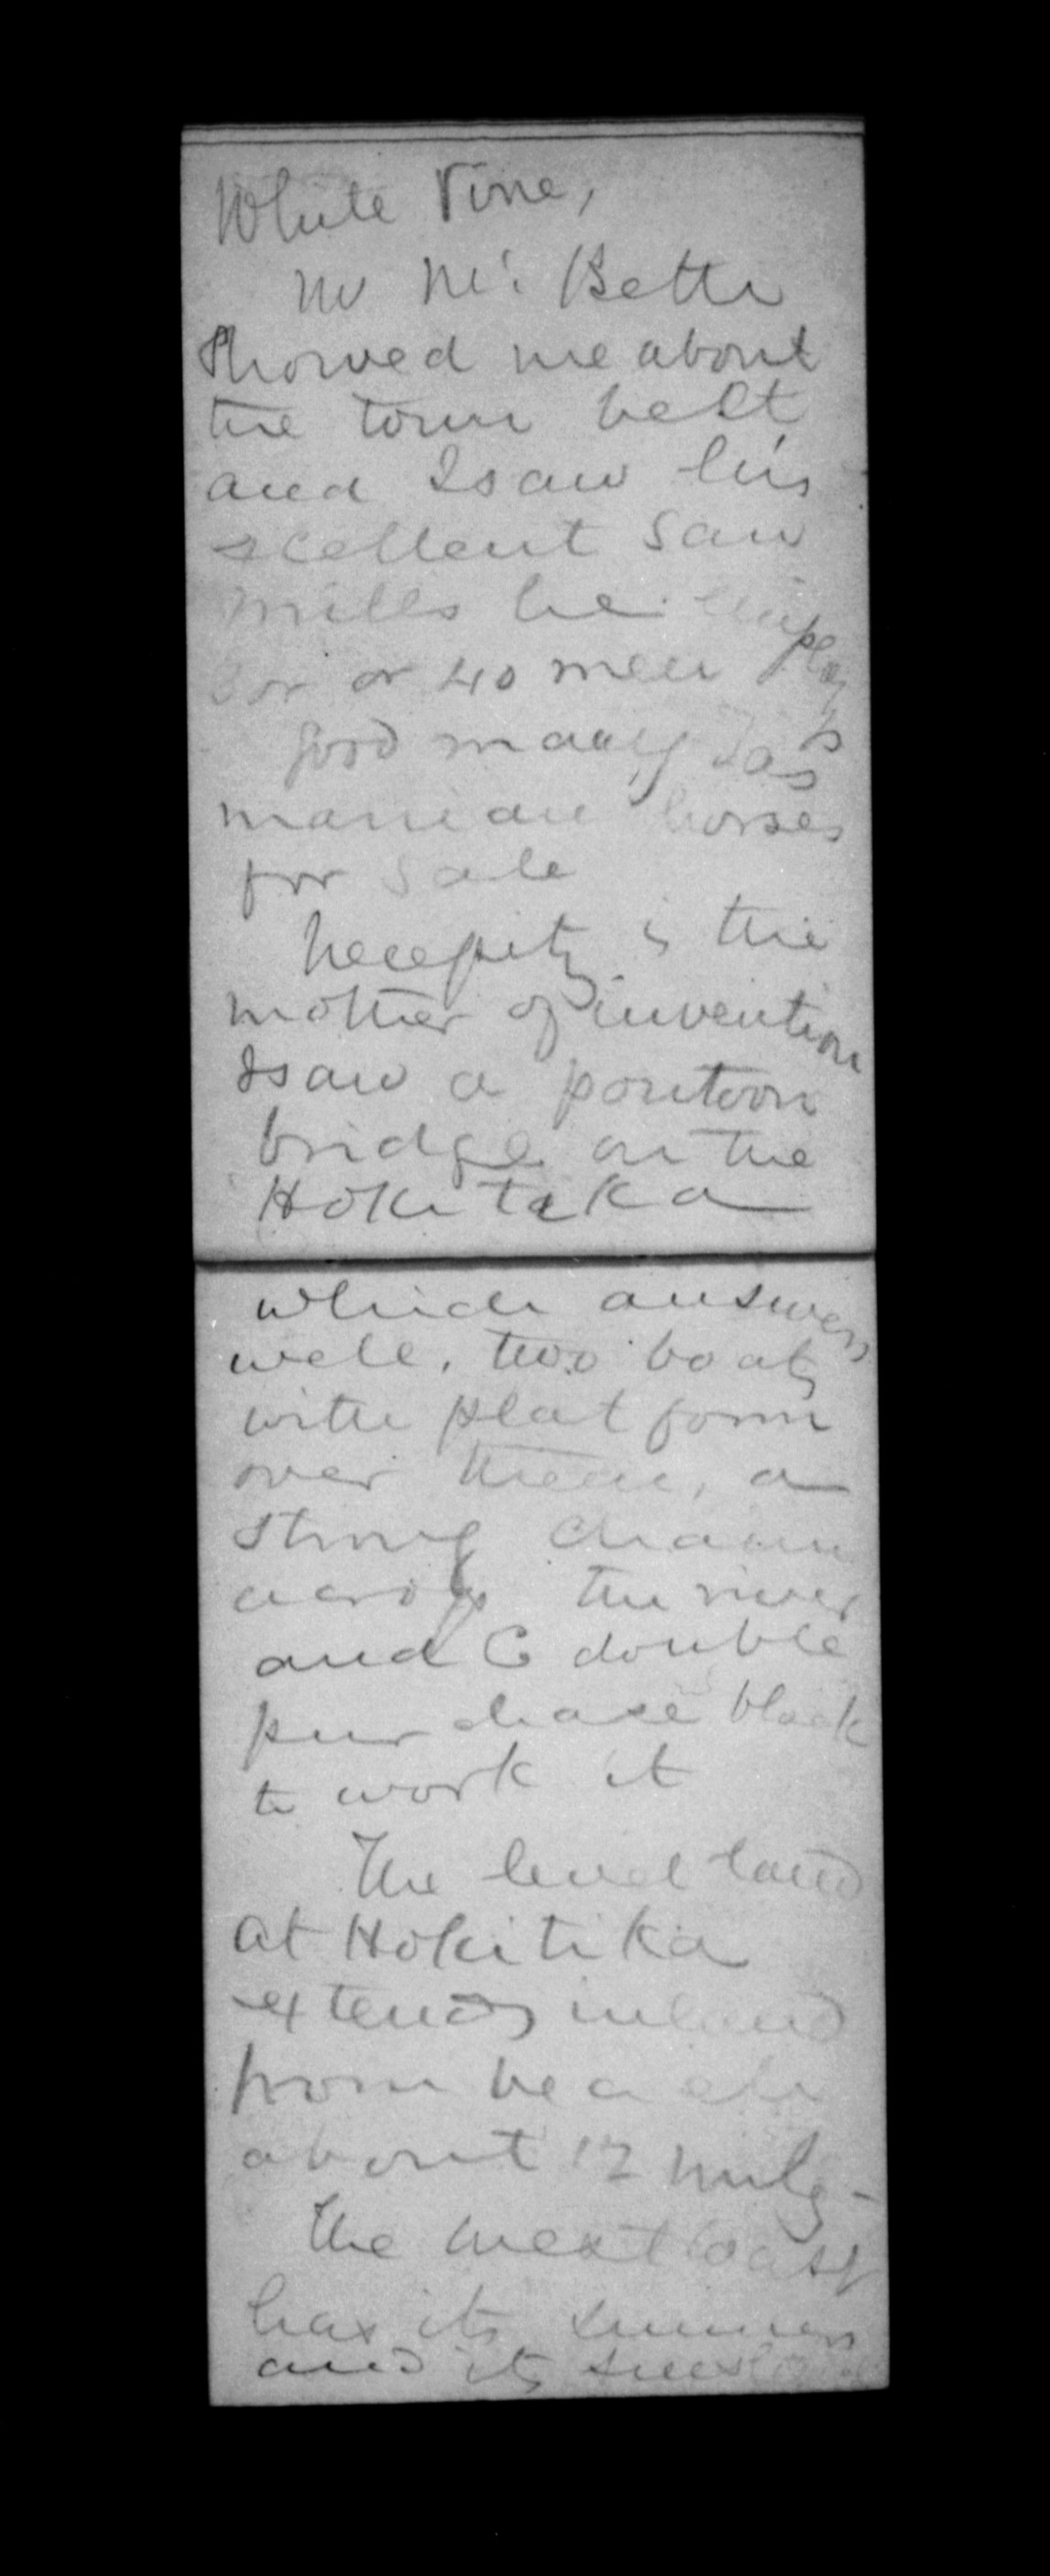 White Pine,
Mr Mc. Beth
Showed me about
the town belt
and I saw his
excellent Saw
mills he employs
30 or 40 men
good many Tas
manian horses
for Sale
Necessity is the
mother of invention
I saw a pontoon
bridge on the
Hokitika
which answers
well, two boats
with platform
over them, a
strong chain
across the river
and 6 double
purchase block
to work it
The level land
at Hokitika
extends inland
from beach
about 12 miles -
The West Coast
has its summers
and its